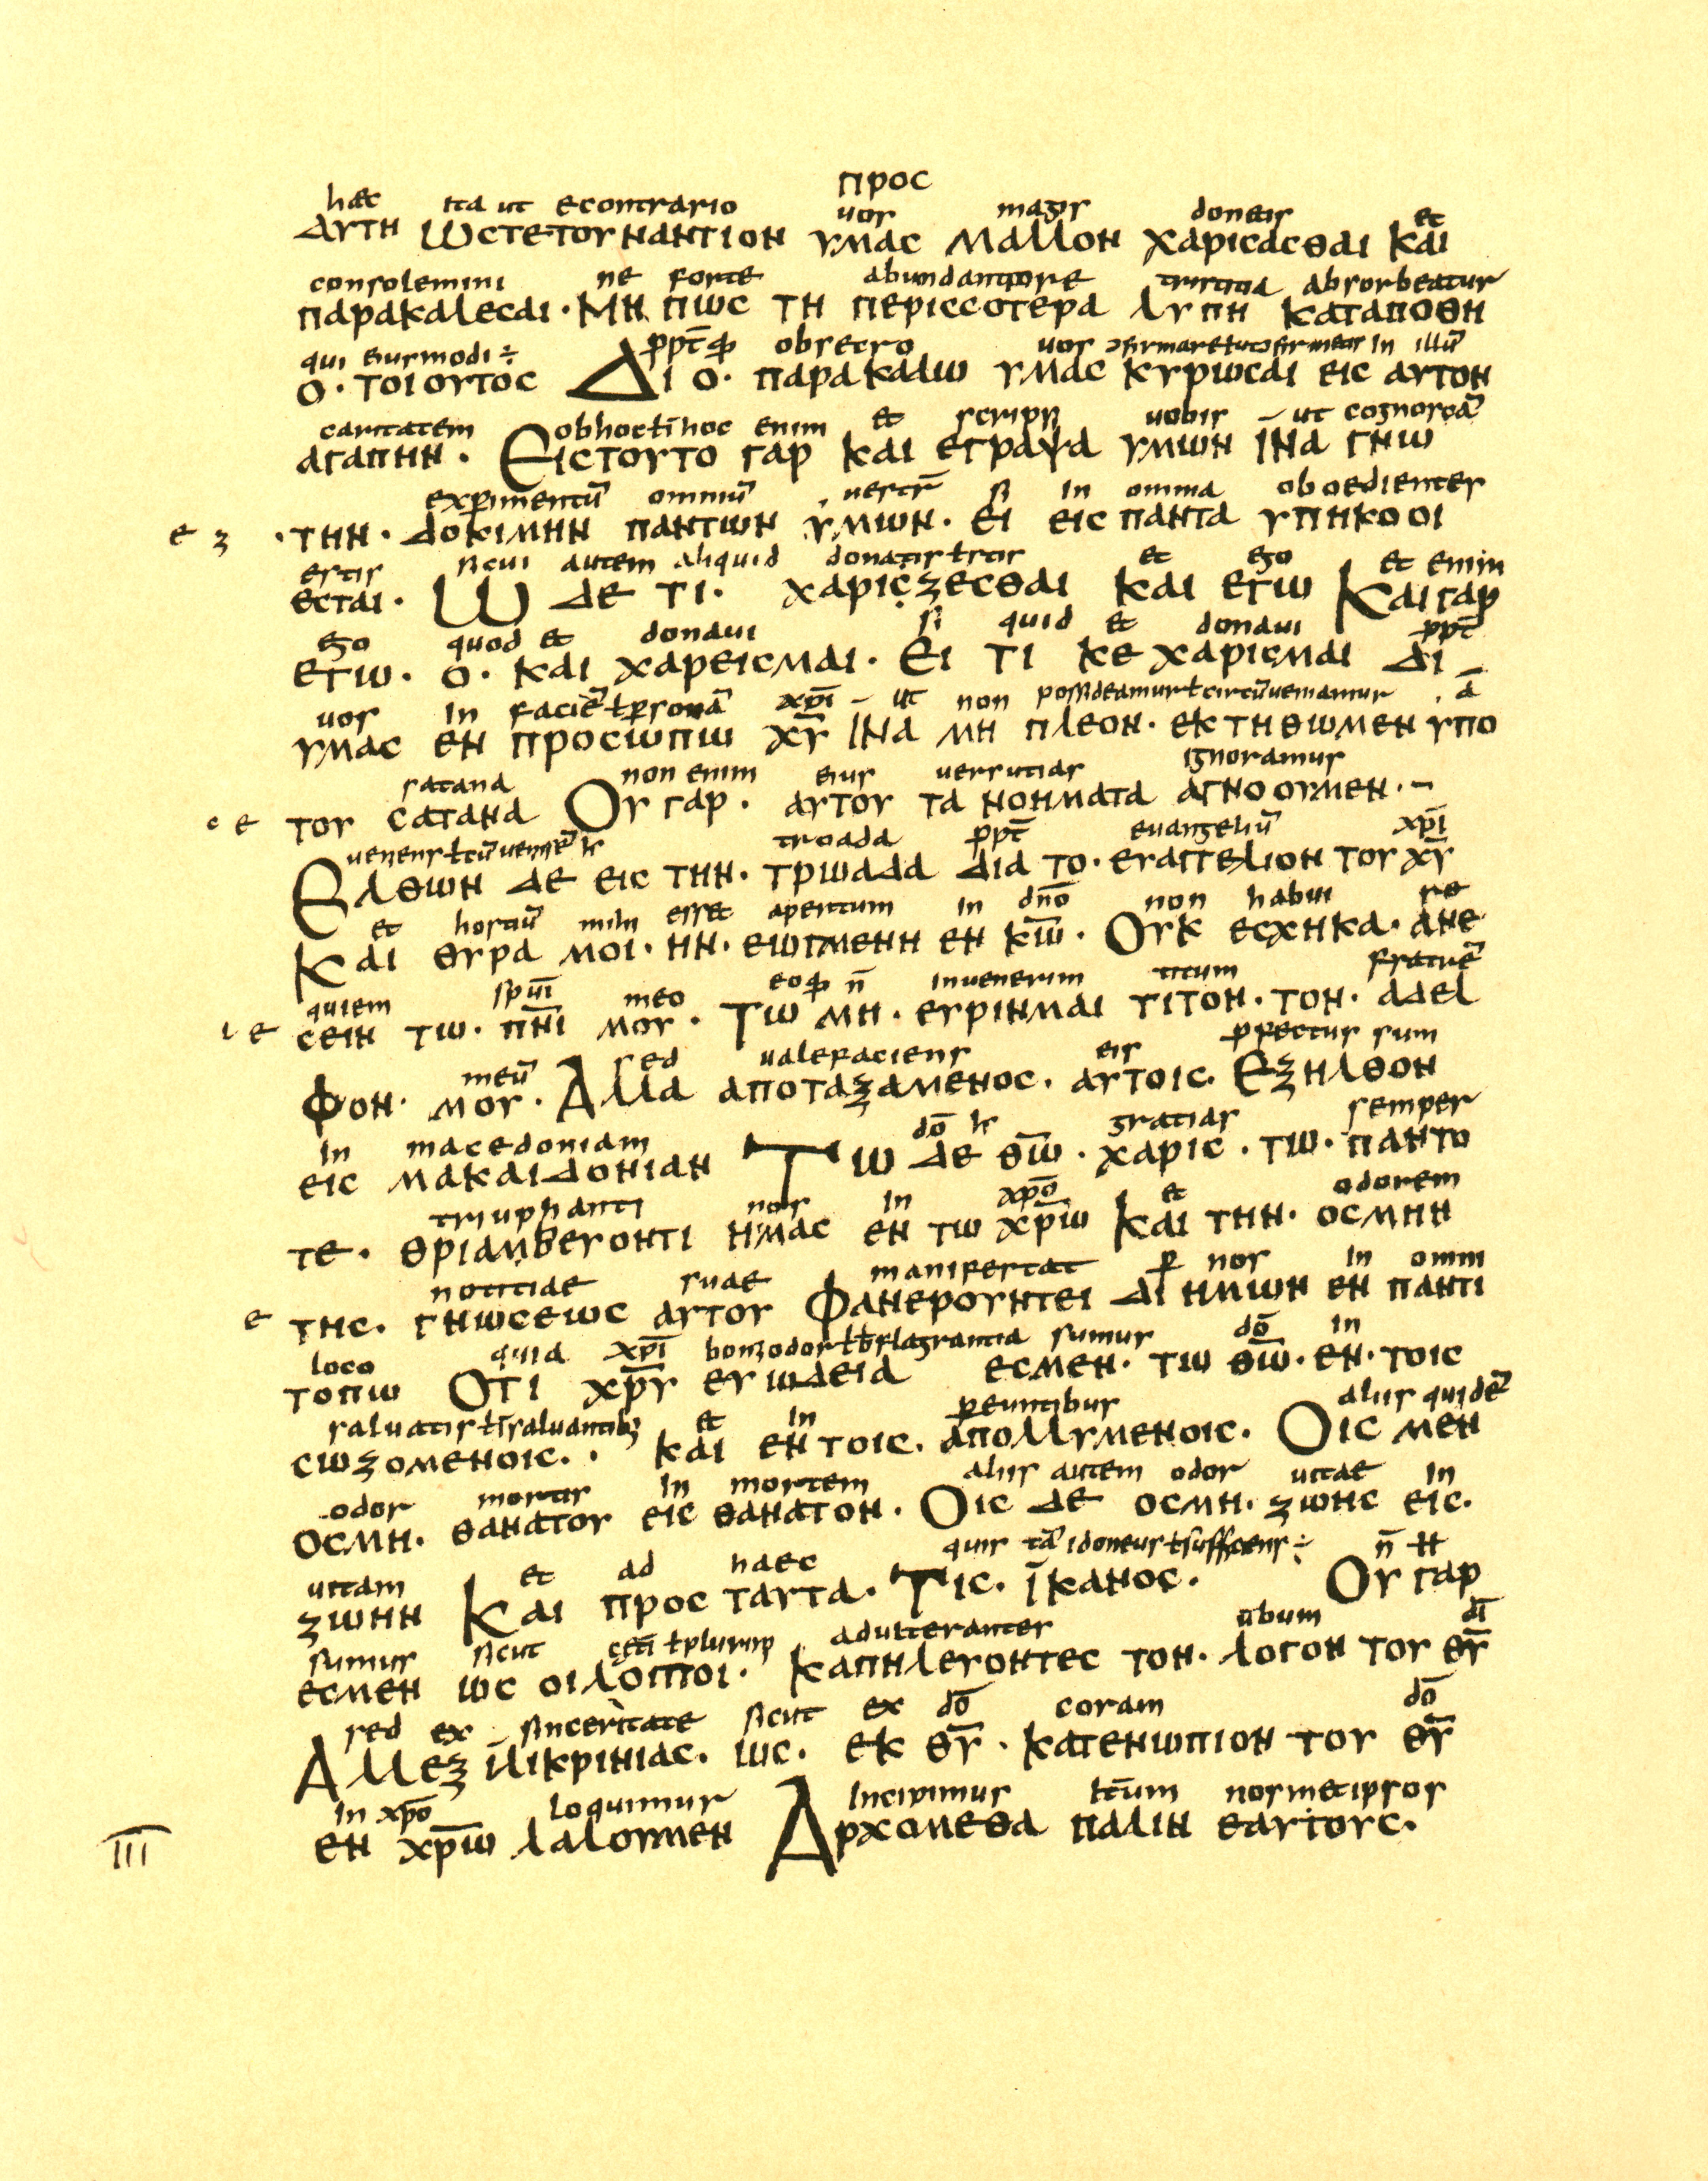 προσ
haec ita ut econtrario uos magis doneis et
αυτη ωστετουναντιον υμας μαλλον χαρισασθαι και
consolemini ne forte abundantiore tristitia absorbeatur
παρακαλεσαι · μη πως τη περισσοτερα λυπη καταποθη
qui eiusmodi ÷ obsecro uos in illū
ο · τοιουτος Δι ο · παρακαλω υμας κυρωσαι εις αυτον
caritatem obhoc ł ī hoc enim et scripsi uobis – ut cognoscā
αγαπην ·Ειςτουτο γαρ και εγραψα υμων ινα γνω
experimentū omniū uestr̄ si in omnia oboedientes
ε ζ · την · δοκιμην παντων υμων · ει εις παντα υπηκοοι
estis sicui autem aliquid donatis et ego et enim
εσται · Ω δε τι · χαρισζεσθαι και εγω Και γαρ
ego quod et donaui si quid et donaui ppt̄
εγω · ο · και χαρεισμαι · Ει τι κε χαρισμαι δι –
uos in faciē ł psonā xp̄i – ut non possideamur ł circūueniamur · ā
υμας εν προσωπω χῡ ινα μη πλεον · εκτηθωμεν υπο
satana non enim eius uersutias ignoramus
c ε του σατανα Ου γαρ · αυτου τα νοηματα αγνοουμεν · –
troada ppt̄ euangeliū xp̄i
Ελθων δε εις την · τρωαδα δια το · ευαγγελιον του χῡ
et hostiū mihi esset apertum in dn̄o non habui re
Και θυρα μοι · ην · εωγμενη εν κω̄ · Ουκ εσχηκα · ανε
quiem spūi meo n̄ inuenerim titum fratrē
ι ε σειν τω · πν̄ι μου · Τω μη · ευρινμαι τιτον · τον · αδελ
meū sed ualefaciens eis sum
φον · μου · Αλλα αποταξαμενος · αυτοις · Εξηλθον
in macedoniam dō gratias semper
εις μακαιδονιαν Τω δε θω̄ · χαρις · τω · παντο
triuphanti nos in xp̄o et odorem
τε · θριαμβευοντι ημας εν τω χρ̄ω και την · οσμην
notitiae suae manifestat p nos in omni
ε της · γνωσεως αυτου Φανερουντει δι ημων εν παντι
loco quia xp̄i sumus dō in
τοπω Οτι χρ̄υ ευωδεια εσμεν · τω θω̄ · εν · τοις
saluatis et in peuntibus aliis quidē
σωζομενοις · · και εν τοις · απολλυμενοις · Οις μεν
odor mortis in mortem aliis autem odor uitae in
οσμη · θανατου εις θανατον · Οις δε οσμη · ζωης εις ·
uitam et ad haec quis tā idoneus ł sufficiens ÷ n̄
ζωην Και προς ταυτα · Τις · ϊκανος · Ου γαρ
sumus sicut adulterantes ūbum dī
εσμεν ως οιλοιποι · Καπηλευοντες τον · λογον του θῡ
sed ex sinceritate sicut ex dō coram dō
Αλλεξ ιλικρινιας · ως · εκ θῡ · κατενωπιον του θῡ
in xp̄o loquimur incipimus nosmetipsos
III εν χρ̄ω λαλουμεν Αρχομεθα παλιν εαυτους ·